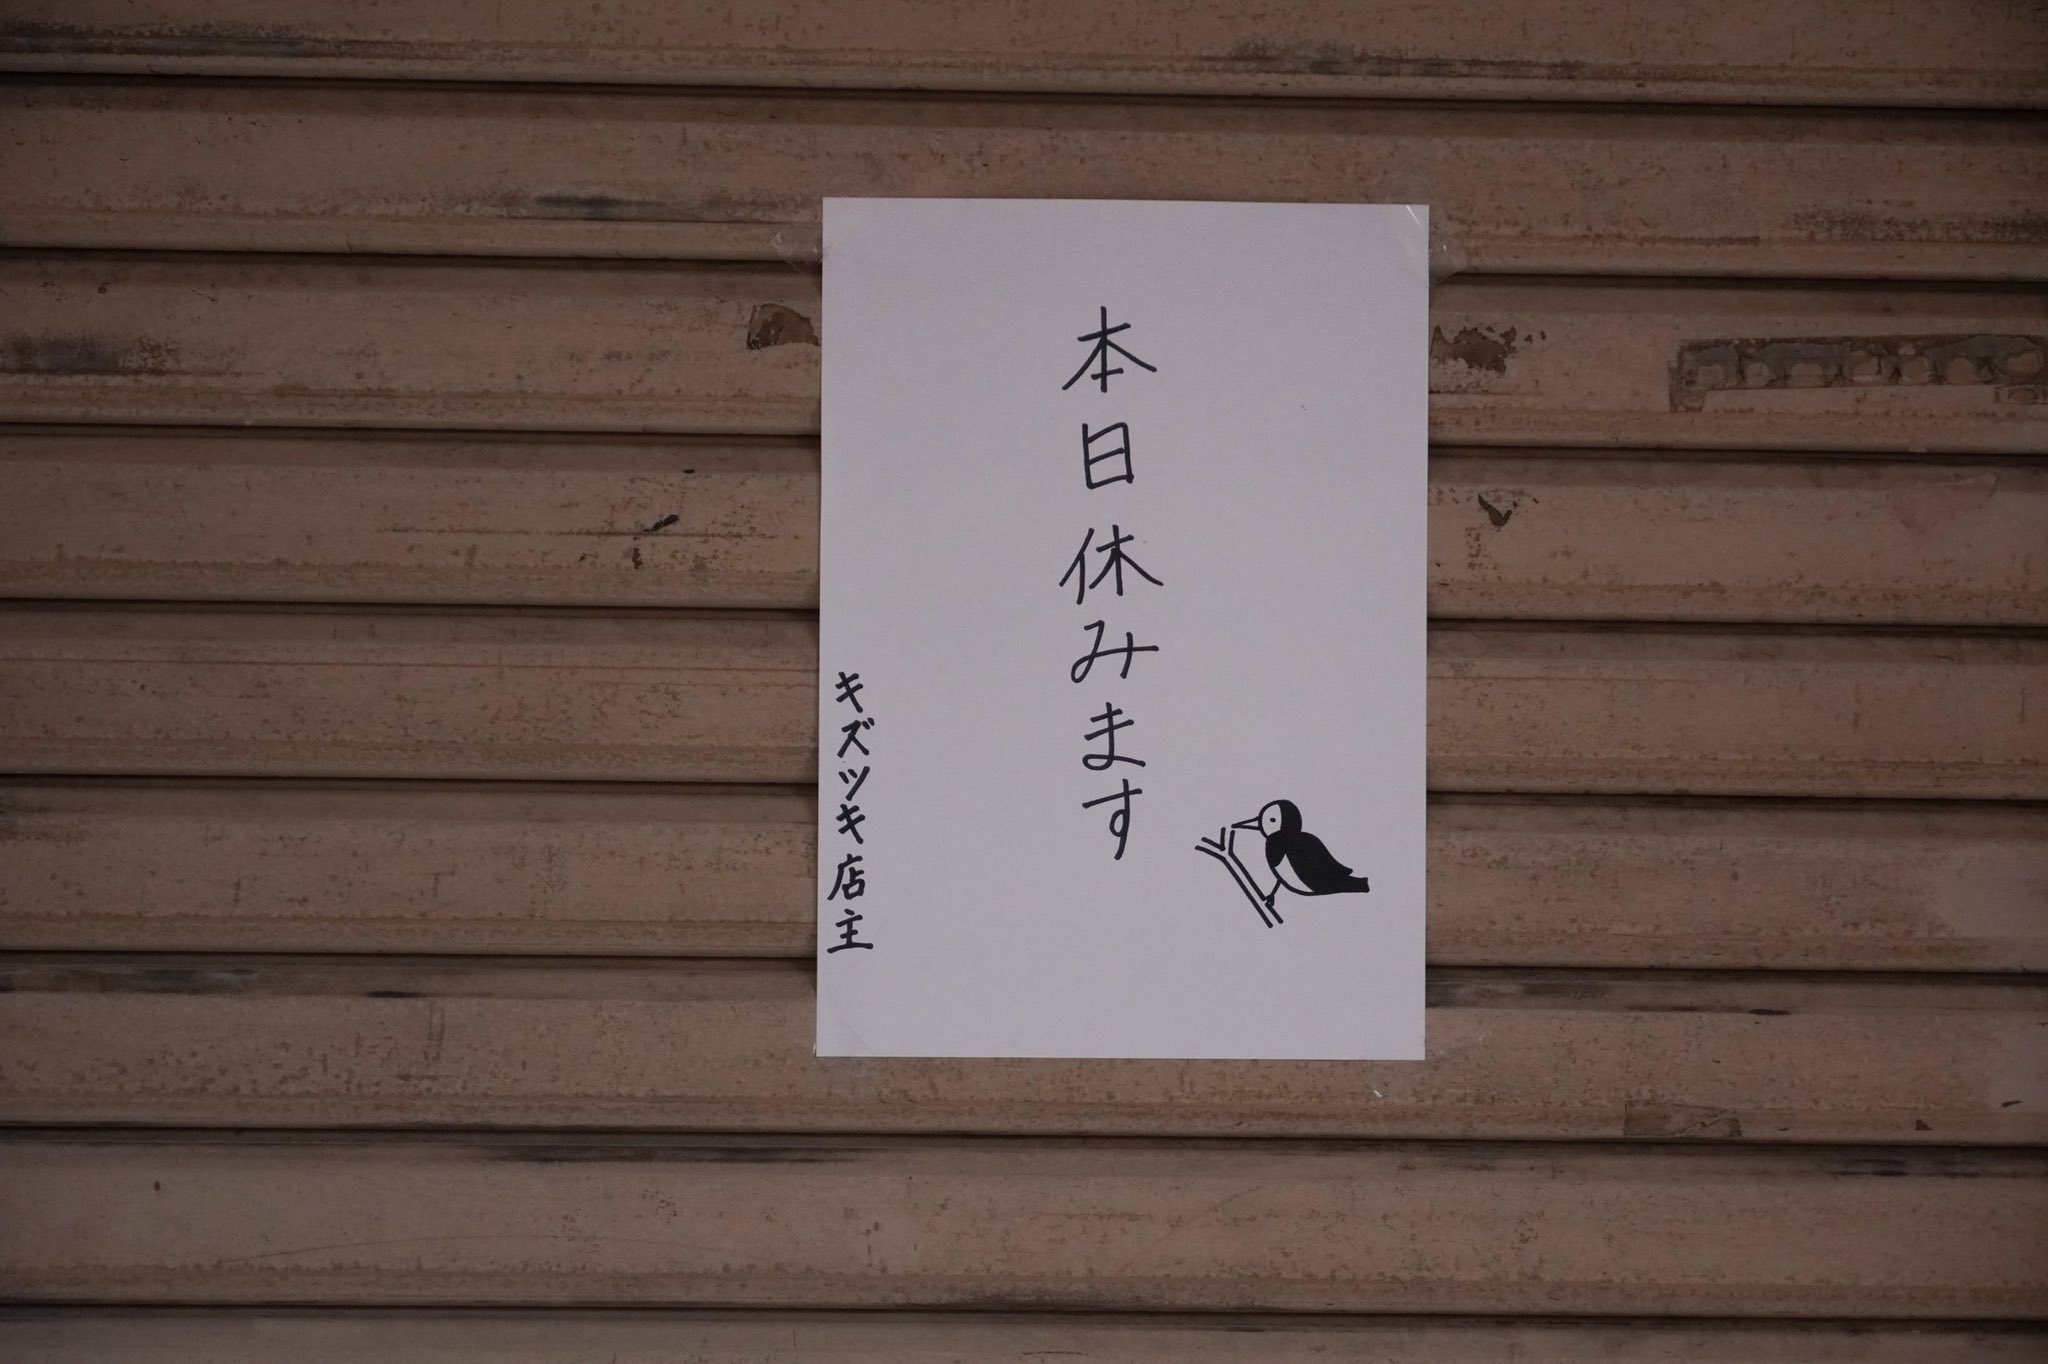 本日休みます
キズツキ店主